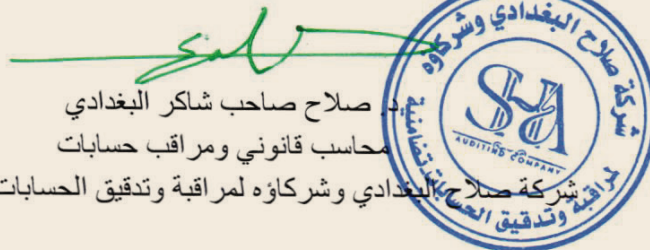 د. صلاح صاحب شاكر البغدادي
محاسب قانوني ومراقب حسابات
شركة صلاح البغدادي وشركاؤه لمراقبة وتدقيق الحسابات
شركة صلاح البغدادي وشركاؤه
لمراقبة وتدقيق الحسابات تضامنية
SHA
AUDITING COMPANY